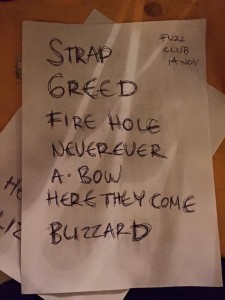 STRAP
GREED
FIRE HOLE
NEVEREVER
A·BOW
HERE THEY COME
BLIZZARD
FUZZ
CLUB
14 NOV